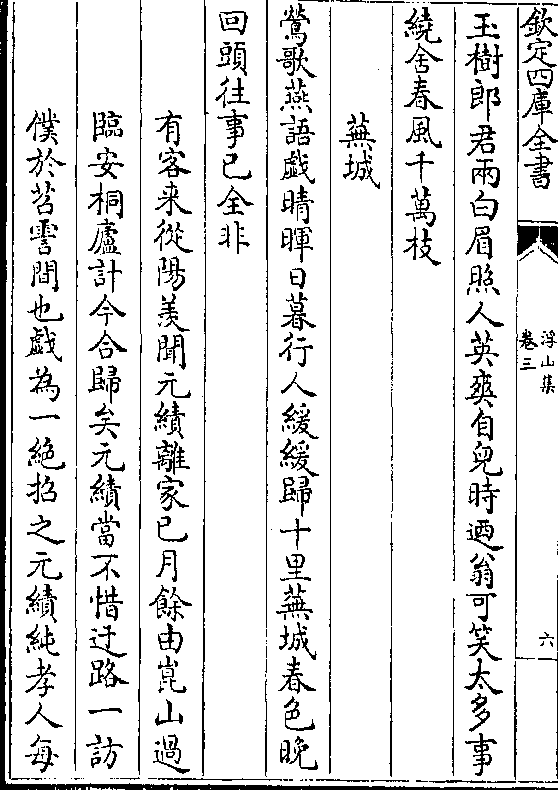 欽定四庫全書
浮山集
卷三
六
玉樹郎君兩白眉照人英爽自兒時迺翁可笑太多事
繞舍春風千萬枝
蕪城
鶯歌燕語戲晴暉日暮行人緩緩歸十里蕪城春色晚
回頭往事已全非
有客来從陽羨聞元績離家已月餘由崑山過
臨安桐廬計今合歸矣元績當不惜迂路一訪
僕於苕霅間也戯為一絶招之元績純孝人每